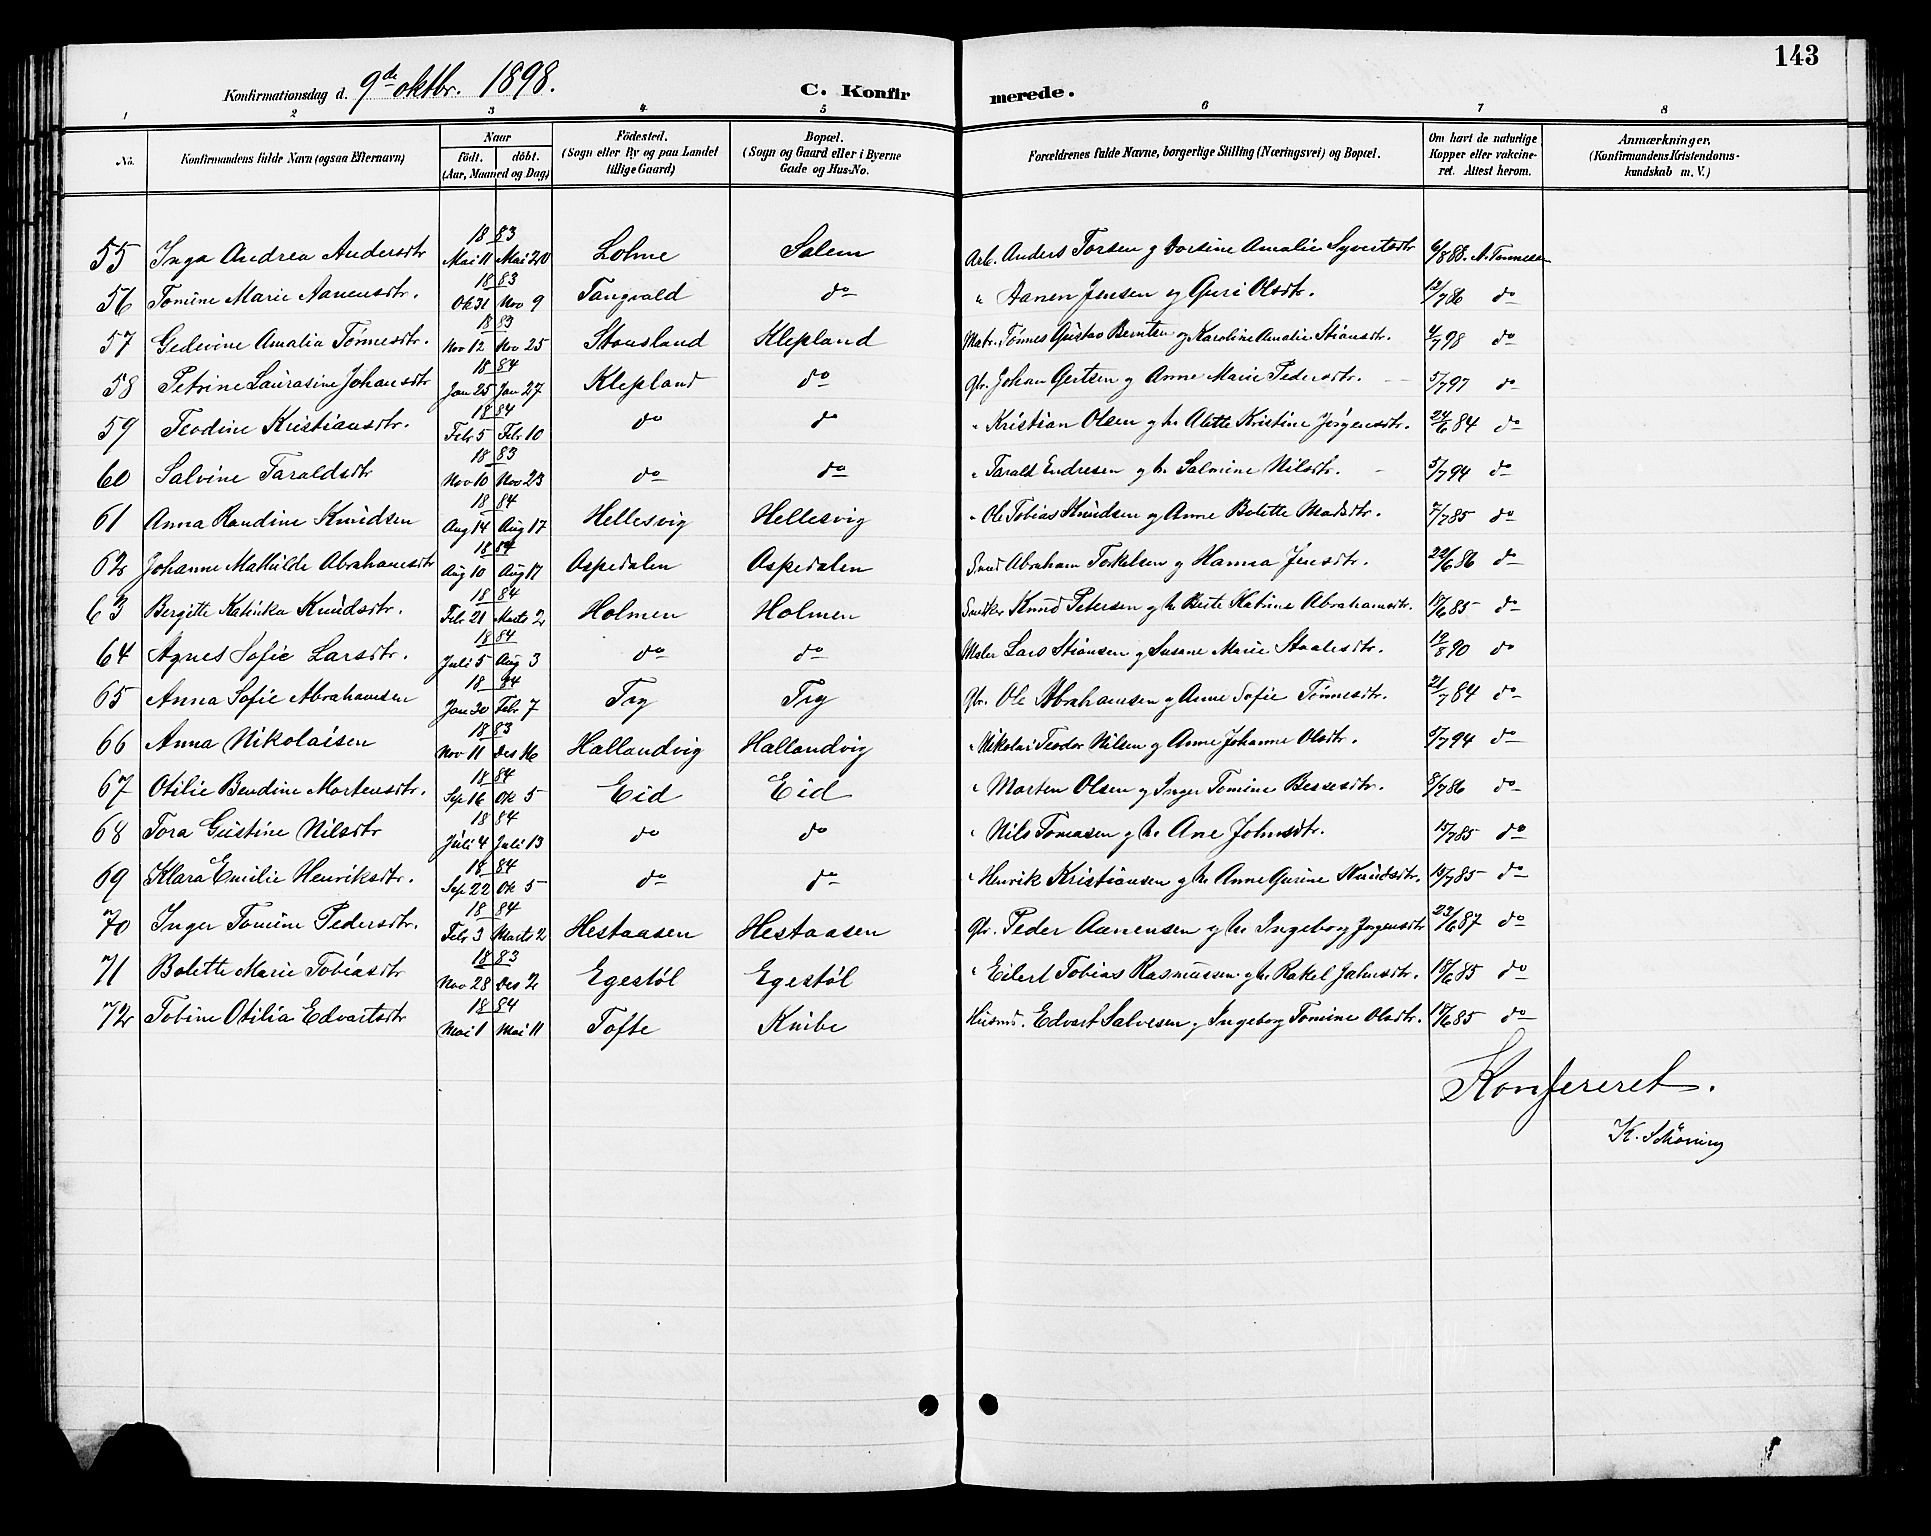 143
Konfirmationsdag d. 9de oktbr. 1898. C. Konfirmerede.
1 2 3 4 5 6 7 8
No. Konfirmandens fulde Navn (ogsaa Efternavn) Naar födt. döbt. (Aar, Maaned og Dag) Födested. (Sogn eller By og paa Landet tillige Gaard) Bopæl. (Sogn og Gaard eller i Byerne Gade og Hus-No. Forældrenes fulde Navne, borgerlige Stilling (Næringsvei) og Bopæl. Om havt de naturlige Kopper eller vakcineret. Attest herom. Anmærkninger. (Konfirmandens Kristendomskundskab m. V.)
18 83
55 Inga Andrea Andersdtr Mai 11 Mai 20 Lohne Salem Arb. Anders Torsen g Dorthine Amalie Syvertsdtr 6/8 88. A. Tønnesen
18 83
56 Tomine Marie Aanensdtr. Ok 31 Nov 9 Tangvald do " Aanen Jensen og Guri Olsdtr. 13/7 86 do
18 83
57 Gedevine Amalia Tønnesdtr. Nov 12 Nov 25 Stousland Klepland Matr. Tønnes Gustav Berntsen og Karoline Amalie Stiansdtr. 4/7 98 do
18 84
58 Petrine Laurasine Johansdtr Jan 25 Jan 27 Klepland do Gbr. Johan Gertsen g Anne Marie Pedersdtr. 5/7 97 do
18 84
59 Teodine Kristiansdtr. Febr 5 Febr 10 do do " Kristian Olsen g h. Alette Kristine Jørgensdtr. 24/6 84 do
18 83
60 Salvine Taraldsdtr Nov 10 Nov 23 do do " Tarald Endresen g h. Salmine Nilsdtr. 5/7 94 do
18 84
61 Anna Randine Knudsen Aug 14 Aug 17 Hellesvig Hellesvig " Ole Tobias Knudsen og Anne Bolette Madsdtr. 7/7 85 do
18 84
62 Johanne Mathilde Abrahamsdtr Aug 10 Aug 17 Ospedalen Ospedalen Smed Abraham Torkelsen g Hanna Jensdtr. 22/6 86 do
18 84
63 Bergitte Katinka Knudsdtr. Febr 21 Marts 2 Holmen Holmen Snedker Knud Petersen g h. Berte Katrine Abrahamsdtr. 18/6 85 do
18 84
64 Agnes Sofie Larsdtr. Juli 5 Aug 3 do do Maler Lars Stiansen g Susane Marie Staalesdtr. 19/8 90 do
18 84
65 Anna Sofie Abrahamsen Jan 30 Febr 7 Try Try Gbr. Ole Abrahamsen og Anne Sofie Tønnesdtr. 21/7 84 do
18 83
66 Anna Nikolaisen Nov 11 Des 16 Hallandvig Hallandvig " Nikolai Teodor Nilsen g Anne Johanne Olsdtr. 5/7 94 do
18 84
67 Otilie Bendine Mortensdtr. Sep 16 Ok 5 Eid Eid " Morten Olsen g Inger Tomine Bessesdtr. 8/7 86 do
18 84
68 Tora Gustine Nilsdtr Juli 4 Juli 13 do do " Nils Tomasen g h. Ane Johnsdtr. 15/7 85 do
18 84
69 Klara Emilie Henriksdtr. Sep 22 Ok 5 do do " Henrik Kristiansen g h. Anne Gurine Knudsdtr. 15/7 85 do
18 84
70 Inger Tomine Pedersdtr. Febr 3 Marts 2 Hestaasen Hestaasen Gbr. Peder Aanensen g h. Ingeborg Jørgensdtr 23/6 87 do
18 83
71 Bolette Marie Tobiasdtr Nov 28 Des 2 Egestøl Egestøl " Eilert Tobias Rasmussen g h. Rakel Jahnsdtr. 18/6 85 do
18 84
72 Tobine Otilia Edvartsdtr Mai 1 Mai 11 Tofte Knibe Husmd. Edvart Salvesen g Ingeborg Tomine Olsdtr. 18/6 85 do
Konfereret.
K. Schöning